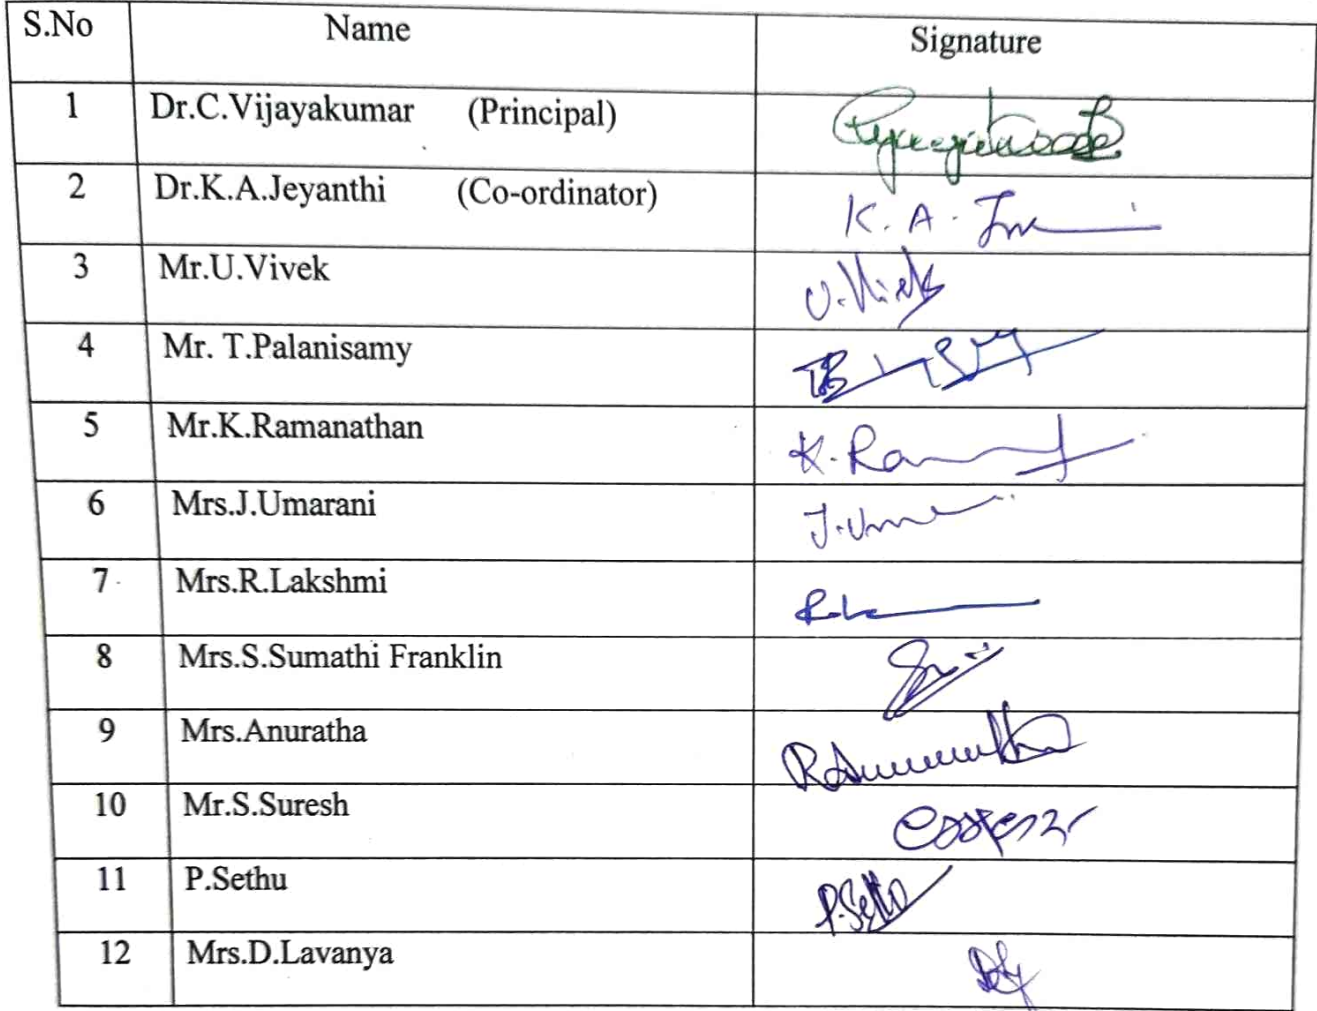 S.No Name Signature
1 Dr.C.Vijayakumar (Principal)
2 Dr.K.A.Jeyanthi (Co-ordinator) K. A.
3 Mr.U.Vivek U.Vivek
4 Mr. T.Palanisamy
5 Mr.K.Ramanathan K.
6 Mrs.J.Umarani J.
7 Mrs.R.Lakshmi
8 Mrs.S.Sumathi Franklin
9 Mrs.Anuratha
10 Mr.S.Suresh
11 P.Sethu P.Sethu
12 Mrs.D.Lavanya